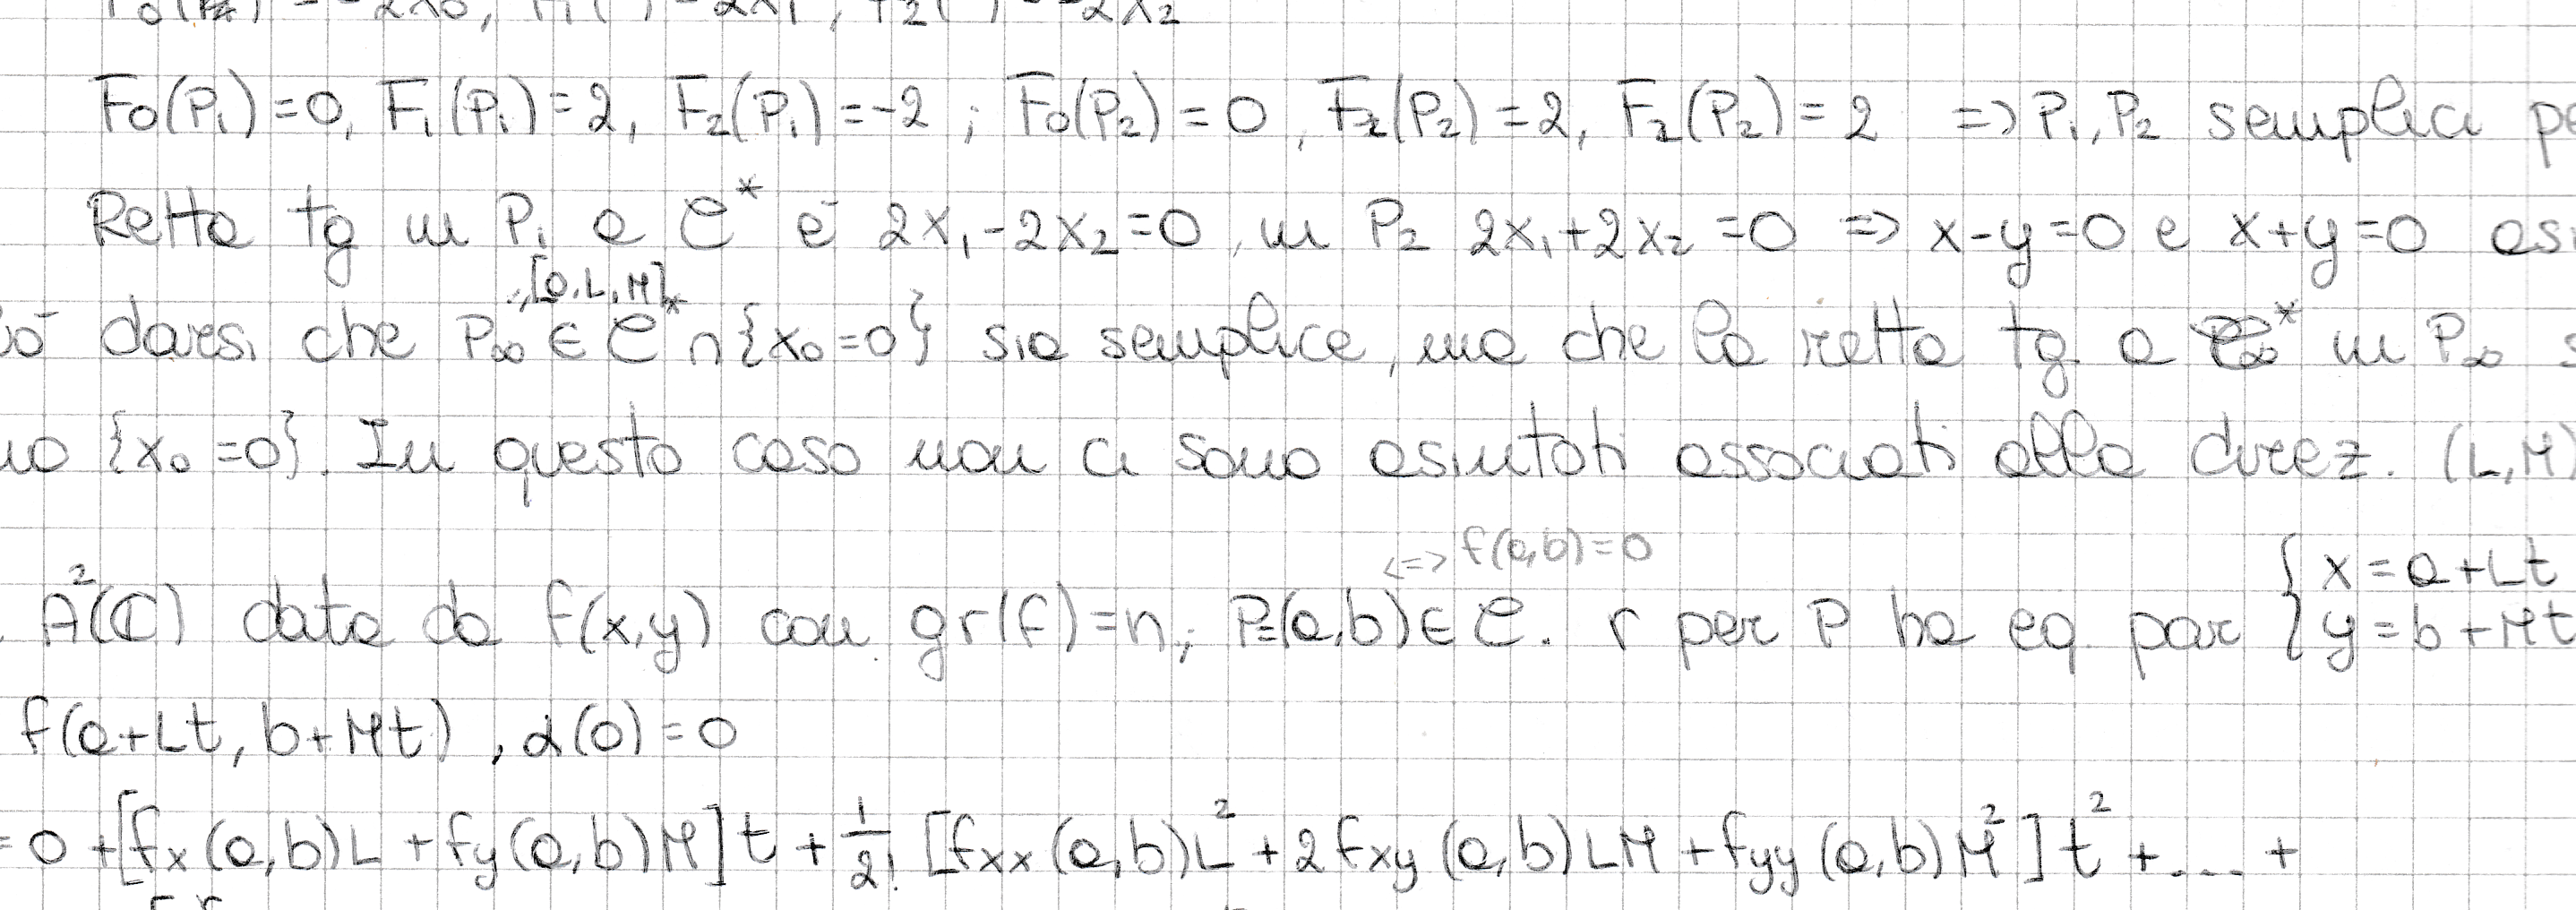 F₀(P₁)=0, F₁(P₁)=2, F₂(P₁)=-2 ; F₀(P₂)=0, F₁(P₂)=2, F₂(P₂)=2 => P₁, P₂ semplici pe
Retta tg in P₁ a C* è 2x₁-2x₂=0, in P₂ 2x₁+2x₂=0 => x-y=0 e x+y=0 asi
[0,L,M]
darsi che P∞ ∈ C* ∩ {x₀=0} sia semplice, ma che la retta tg a C* in P∞ s
no {x₀=0}. In questo caso non ci sono asintoti associati alla direz. (L,M)
<=> f(a,b)=0
A²(ℂ) data da f(x,y) con gr(f)=n, P=(a,b)∈C. r per P ha eq. par { x=a+Lt
{ y=b+Mt
f(a+Lt, b+Mt), α(0)=0
=0+[fx(a,b)L+fy(a,b)M]t+1/2![fxx(a,b)L²+2fxy(a,b)LM+fyy(a,b)M²]t²+...+